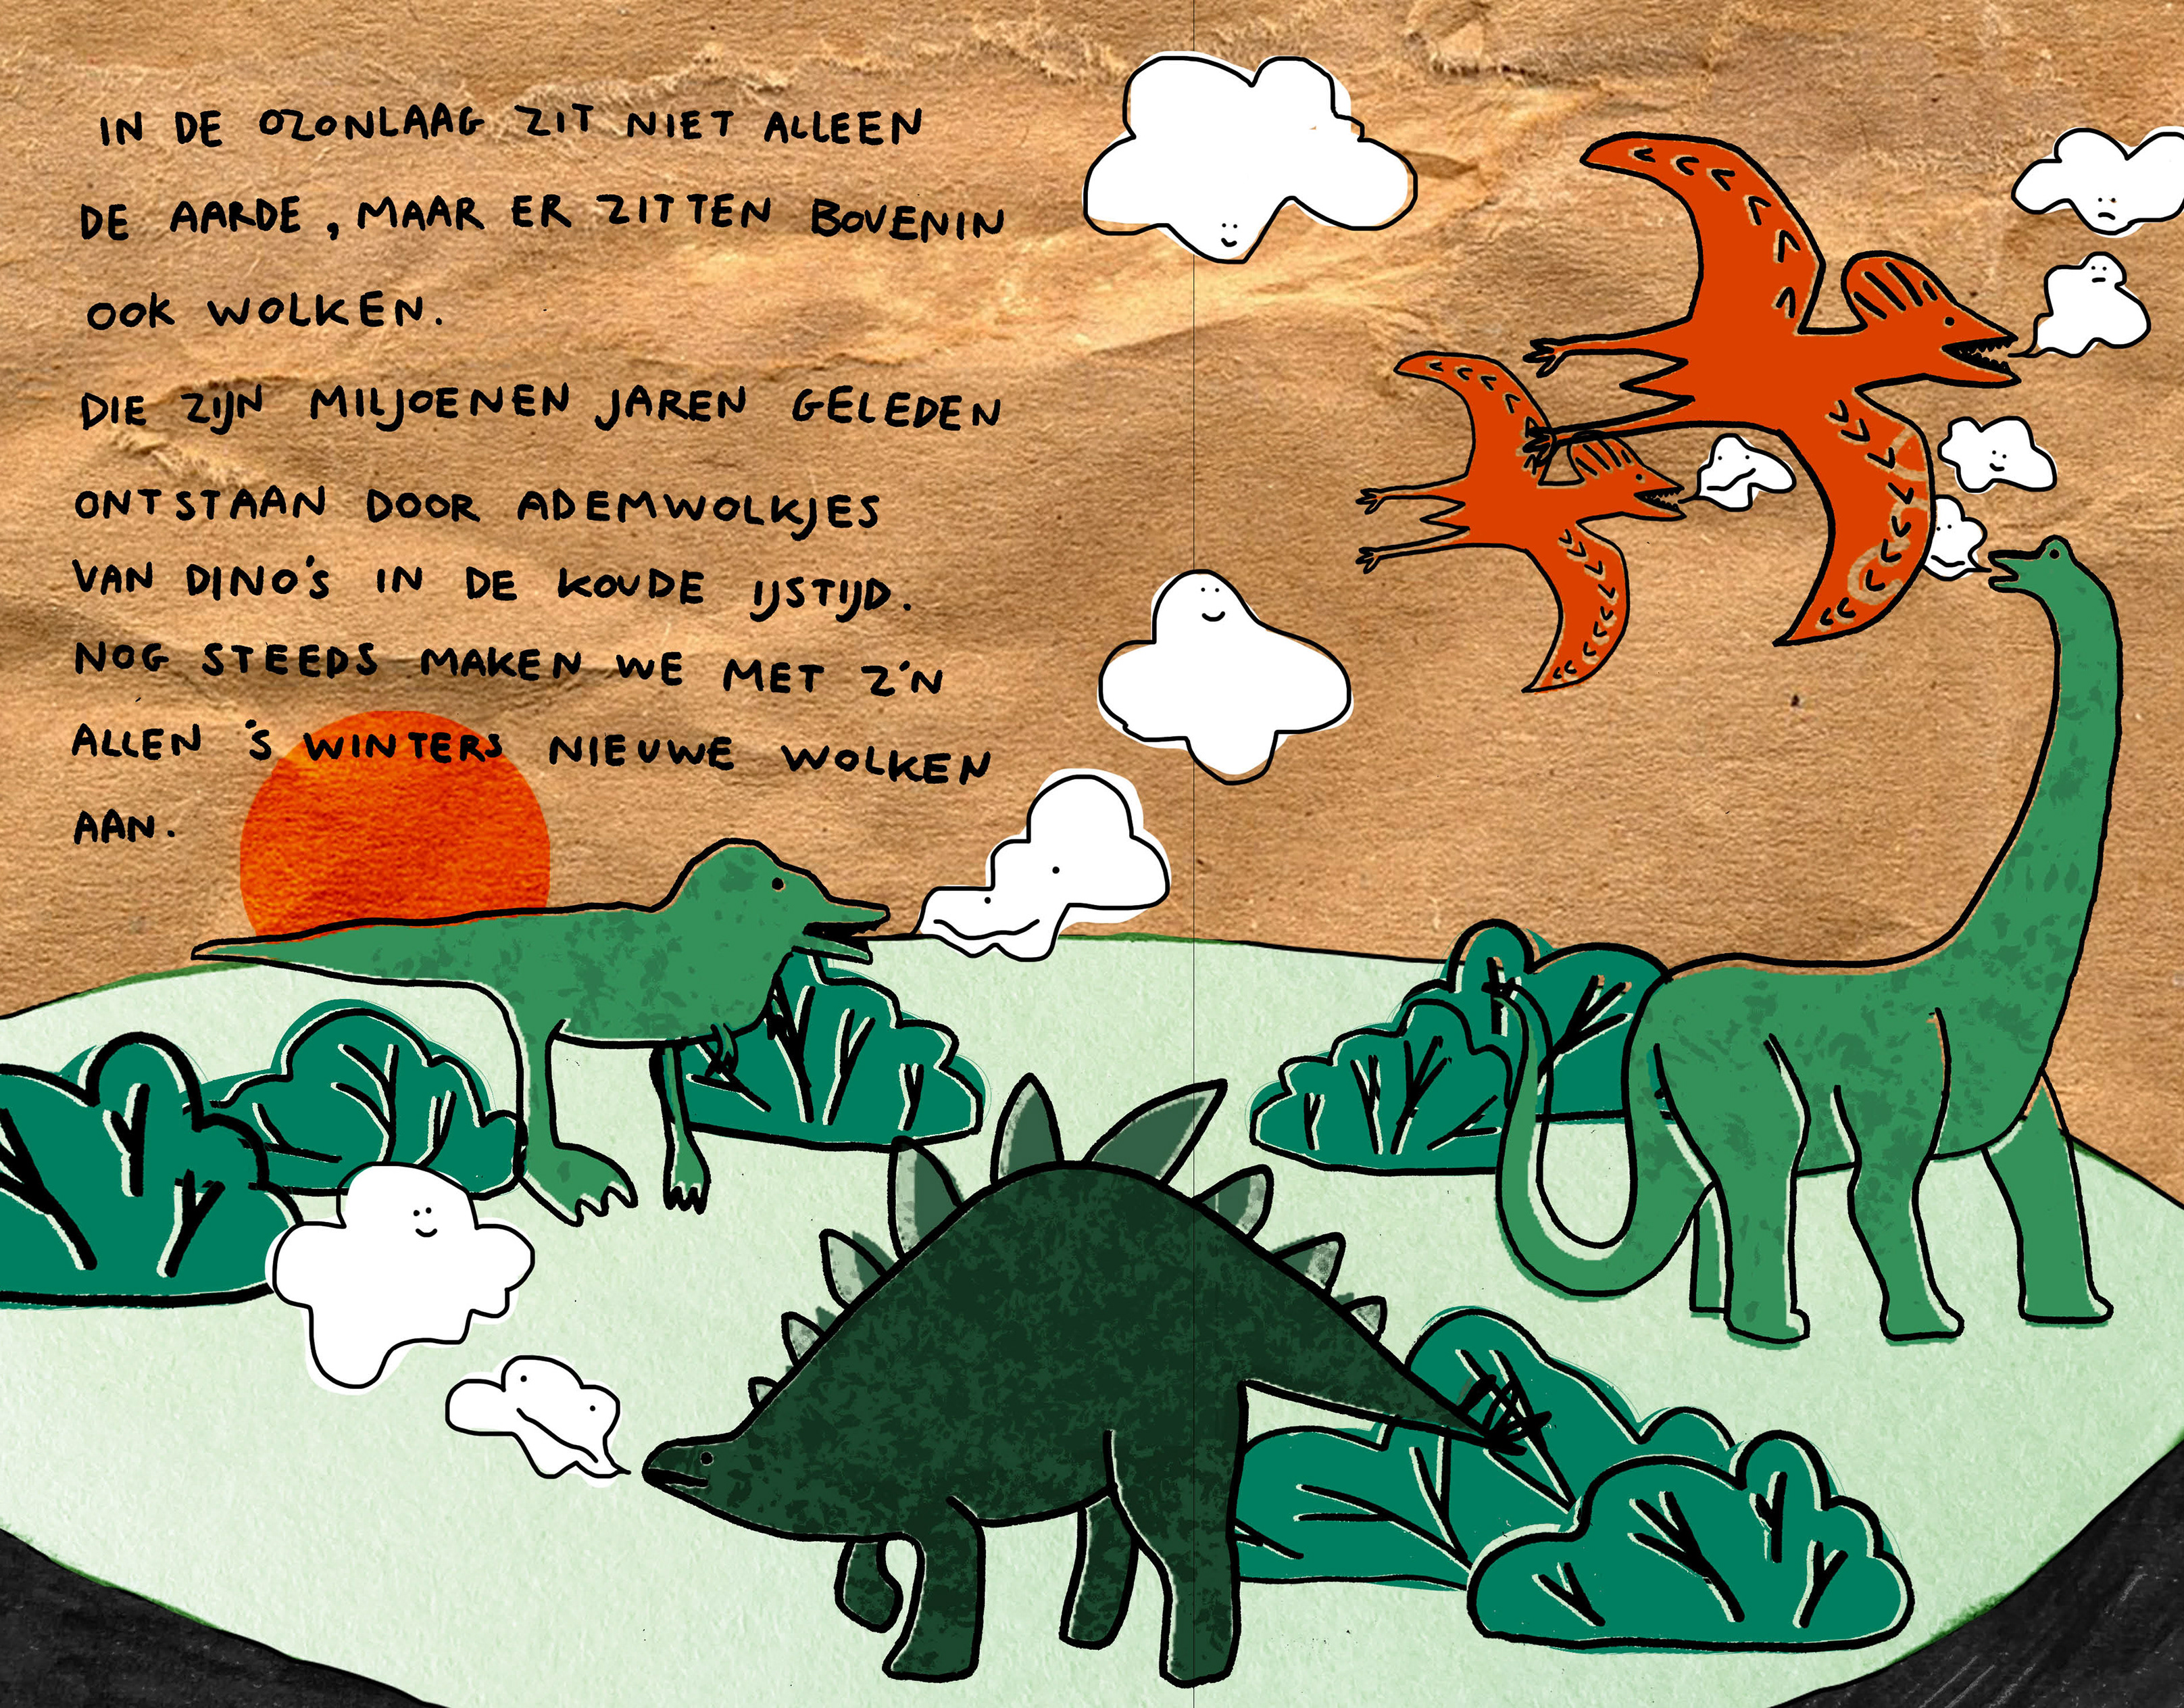 IN DE OZONLAAG ZIT NIET ALLEEN
DE AARDE, MAAR ER ZITTEN BOVENIN
OOK WOLKEN.
DIE ZIJN MILJOENEN JAREN GELEDEN
ONTSTAAN DOOR ADEMWOLKJES
VAN DINO'S IN DE KOUDE IJSTIJD.
NOG STEEDS MAKEN WE MET Z'N
ALLEN 'S WINTERS NIEUWE WOLKEN
AAN.